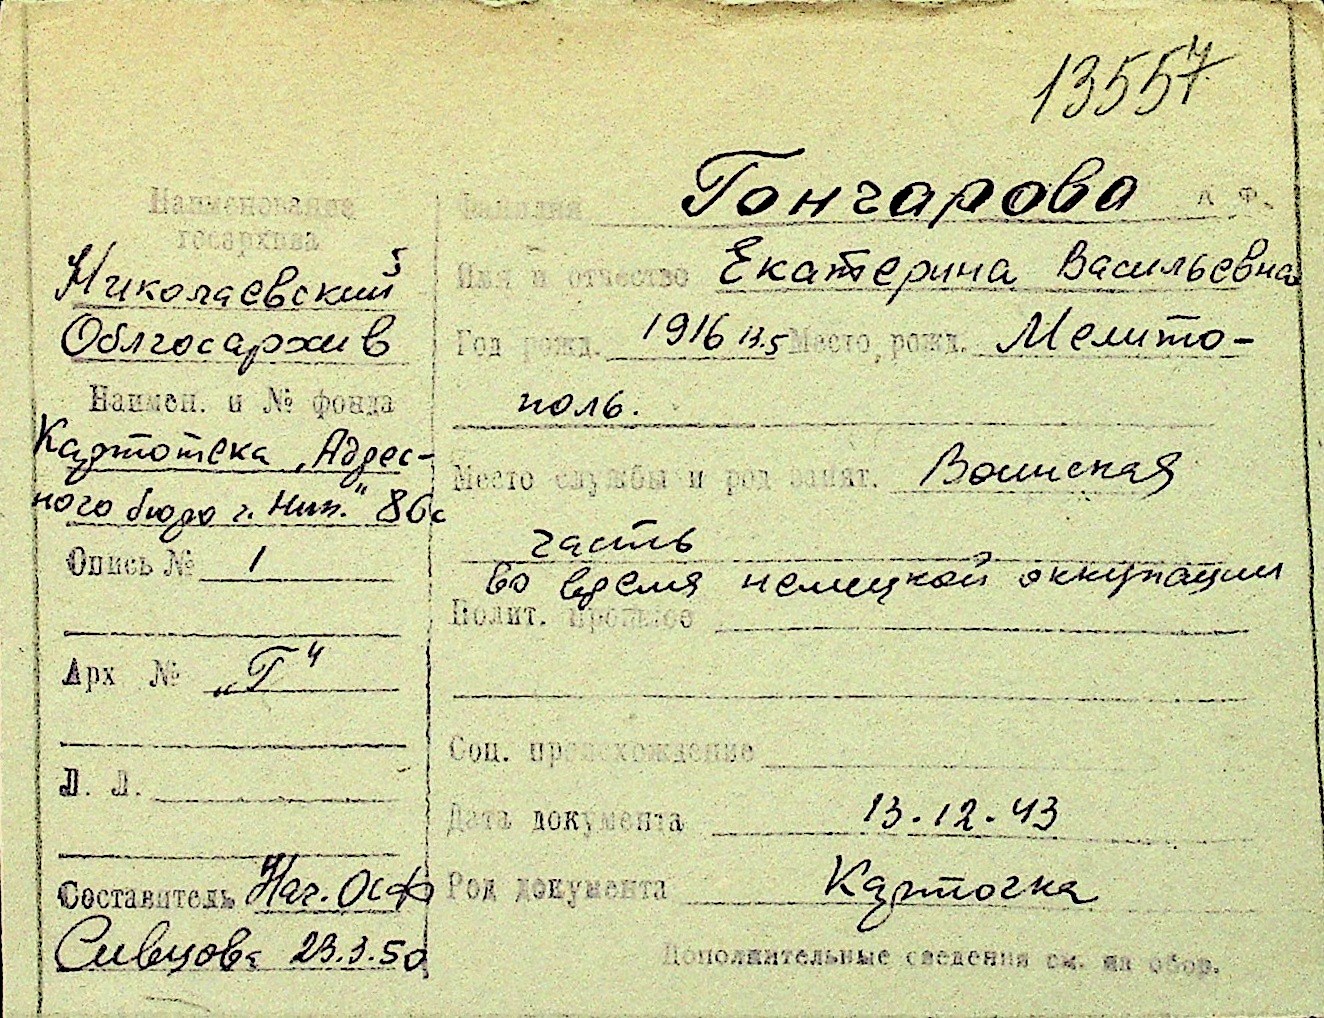 13557
Наименование
госархива
Николаевский
Облгосархив
Наимен. и № фонда
Картотека „Адрес-
ного бюро г. Ник." 86с
Опись № 1
Арх № „Г"
Л. Л.
Составитель Нач. ОСФ
Сивцова 23.3.50
Фамилия Гончарова А Ф.
Имя и отчество Екатерина Васильевна
Год рожд. 1916 13.5 Место рожд. Мелито-
поль.
Место службы и род занят. Воинская
часть
во время немецкой оккупации
Полит. прошлое
Соц. происхождение
Дата документа 13.12.43
Род документа Карточка
Дополнительные сведения см. на обор.